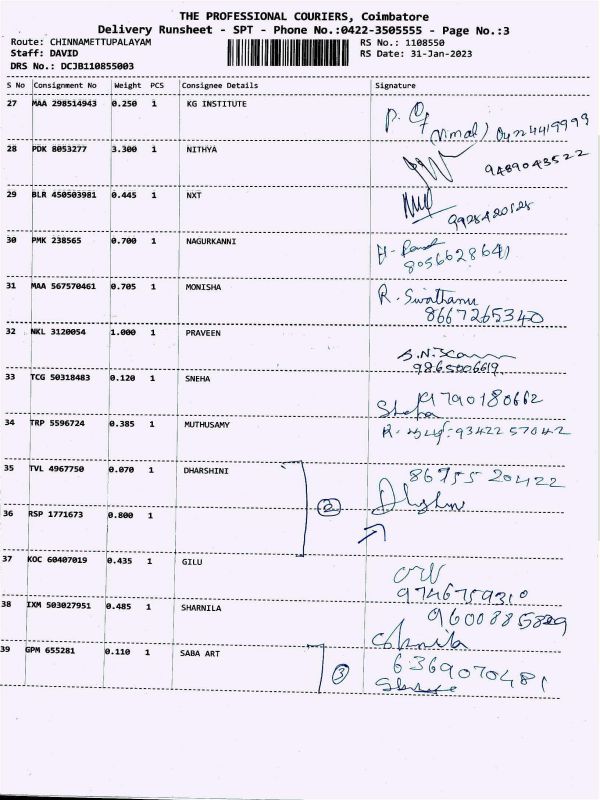 THE PROFESSIONAL COURIERS, Coimbatore
Delivery Runsheet - SPT - Phone No.:0422-3505555 - Page No.:3
Route: CHINNAMETTUPALAYAM RS No.: 1108550
Staff: DAVID RS Date: 31-Jan-2023
DRS No.: DCJB110855003
S No Consignment No Weight PCS Consignee Details Signature
27 MAA 298514943 0.250 1 KG INSTITUTE
(Vimal) 0422 4419999
28 PDK 8053277 3.300 1 NITHYA
9489043522
29 BLR 450503981 0.445 1 NXT
30 PMK 238565 0.700 1 NAGURKANNI
8056628641
31 MAA 567570461 0.705 1 MONISHA
R. Swathanu
8667265340
32 NKL 3120054 1.000 1 PRAVEEN
9865006619
33 TCG 50318483 0.120 1 SNEHA
34 TRP 5596724 0.385 1 MUTHUSAMY
9342257042
35 TVL 4967750 0.070 1 DHARSHINI
86755 20422
36 RSP 1771673 0.800 1
2
37 KOC 60407019 0.435 1 GILU
9746759310
38 IXM 503027951 0.485 1 SHARNILA
39 GPM 655281 0.110 1 SABA ART
6369070481
3